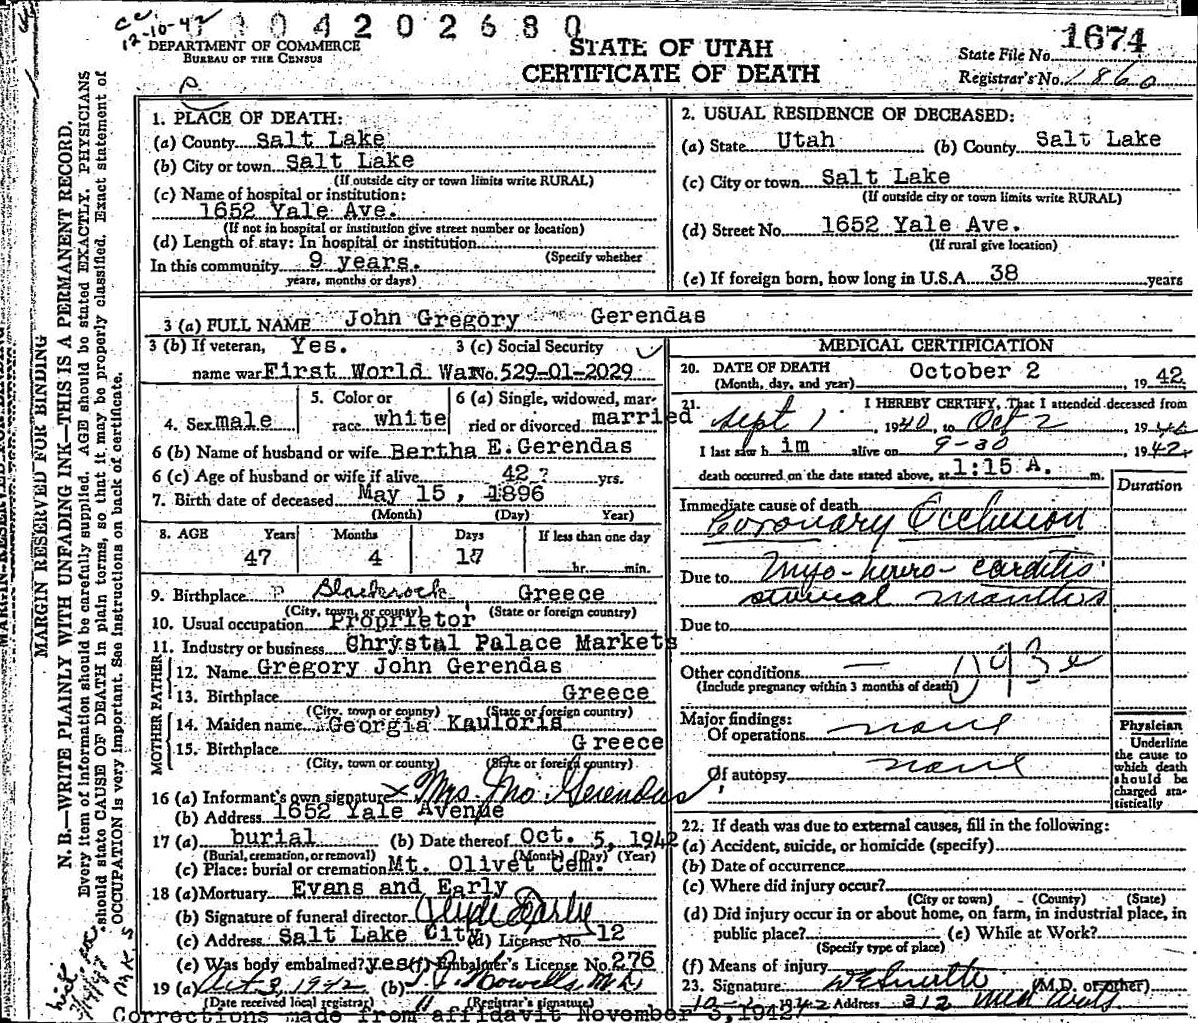 cc
12-10-42
1 0 4 2 0 2 6 8 0
DEPARTMENT OF COMMERCE
BUREAU OF THE CENSUS
STATE OF UTAH
CERTIFICATE OF DEATH
State File No. 1674
Registrar's No. 1860
MARGIN RESERVED FOR BINDING
N. B.—WRITE PLAINLY WITH UNFADING INK—THIS IS A PERMANENT RECORD.
Every item of information should be carefully supplied. AGE should be stated EXACTLY. PHYSICIANS
should state CAUSE OF DEATH in plain terms, so that it may be properly classified. Exact statement of
OCCUPATION is very important. See instructions on back of certificate.
1. PLACE OF DEATH:
(a) County Salt Lake
(b) City or town Salt Lake
(If outside city or town limits write RURAL)
(c) Name of hospital or institution:
1652 Yale Ave.
(If not in hospital or institution give street number or location)
(d) Length of stay: In hospital or institution
(Specify whether
In this community 9 years.
years, months or days)
2. USUAL RESIDENCE OF DECEASED:
(a) State Utah (b) County Salt Lake
(c) City or town Salt Lake
(If outside city or town limits write RURAL)
(d) Street No. 1652 Yale Ave.
(If rural give location)
(e) If foreign born, how long in U.S.A. 38 years
3 (a) FULL NAME John Gregory Gerendas
3 (b) If veteran, Yes. 3 (c) Social Security
name war First World War No. 529-01-2029
4. Sex male
5. Color or
race white
6 (a) Single, widowed, mar-
ried or divorced married
6 (b) Name of husband or wife Bertha E. Gerendas
6 (c) Age of husband or wife if alive 42 ? yrs.
7. Birth date of deceased May 15, 1896
(Month) (Day) Year)
8. AGE Years Months Days If less than one day
47 4 17 hr. min.
9. Birthplace Blackrock Greece
(City, town, or county) (State or foreign country)
10. Usual occupation Proprietor
11. Industry or business Chrystal Palace Markets
FATHER
12. Name Gregory John Gerendas
13. Birthplace Greece
(City, town or county) (State or foreign country)
MOTHER
14. Maiden name Georgia Kauloris
15. Birthplace Greece
(City, town or county) (State or foreign country)
16 (a) Informant's own signature x Mrs. Jno Gerendas
(b) Address 1652 Yale Avenue
17 (a) burial (b) Date thereof Oct. 5, 1942
(Burial, cremation, or removal) (Month) (Day) (Year)
(c) Place: burial or cremation Mt. Olivet Cem.
18 (a) Mortuary Evans and Early
(b) Signature of funeral director Clyde Early
(c) Address Salt Lake City (d) License No. 12
(e) Was body embalmed? yes (f) Embalmer's License No. 276
19 (a) Oct 3 1942 (b)
(Date received local registrar) (Registrar's signature)
MEDICAL CERTIFICATION
20. DATE OF DEATH October 2
(Month, day, and year) 1942
21. I HEREBY CERTIFY, That I attended deceased from
Sept 1, 1940, to Oct 2
I last saw him alive on 9-30, 1942,
death occurred on the date stated above, at 1:15 A. m.
Duration
Immediate cause of death
Coronary Occlusion
Due to
several months
Due to
Other conditions —
(Include pregnancy within 3 months of death)
Major findings:
Of operations none
Of autopsy none
Physician
Underline
the cause to
which death
should be
charged sta-
tistically
22. If death was due to external causes, fill in the following:
(a) Accident, suicide, or homicide (specify)
(b) Date of occurrence
(c) Where did injury occur?
(City or town) (County) (State)
(d) Did injury occur in or about home, on farm, in industrial place, in
public place? (e) While at Work?
(Specify type of place)
(f) Means of injury
23. Signature (M.D. or other)
1942 Address 312
Corrections made from affidavit November 3, 1942